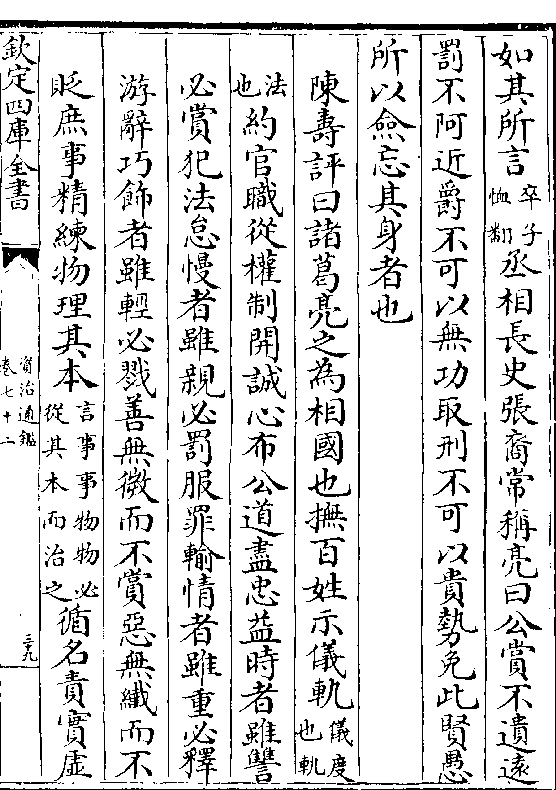 如其所言卒子恤翻丞相長史張裔常稱亮曰公賞不遺遠
罰不阿近爵不可以無功取刑不可以貴勢免此賢愚
所以僉忘其身者也
陳壽評曰諸葛亮之為相國也撫百姓示儀軌儀度也軌
法也約官職從權制開誠心布公道盡忠益時者雖讐
必賞犯法怠慢者雖親必罰服罪輸情者雖重必釋
游辭巧飾者雖輕必戮善無微而不賞惡無纖而不
貶庶事精練物理其本言事事物物必從其本而治之循名責實虛
欽定四庫全書
資治通鑑
卷七十二
三九